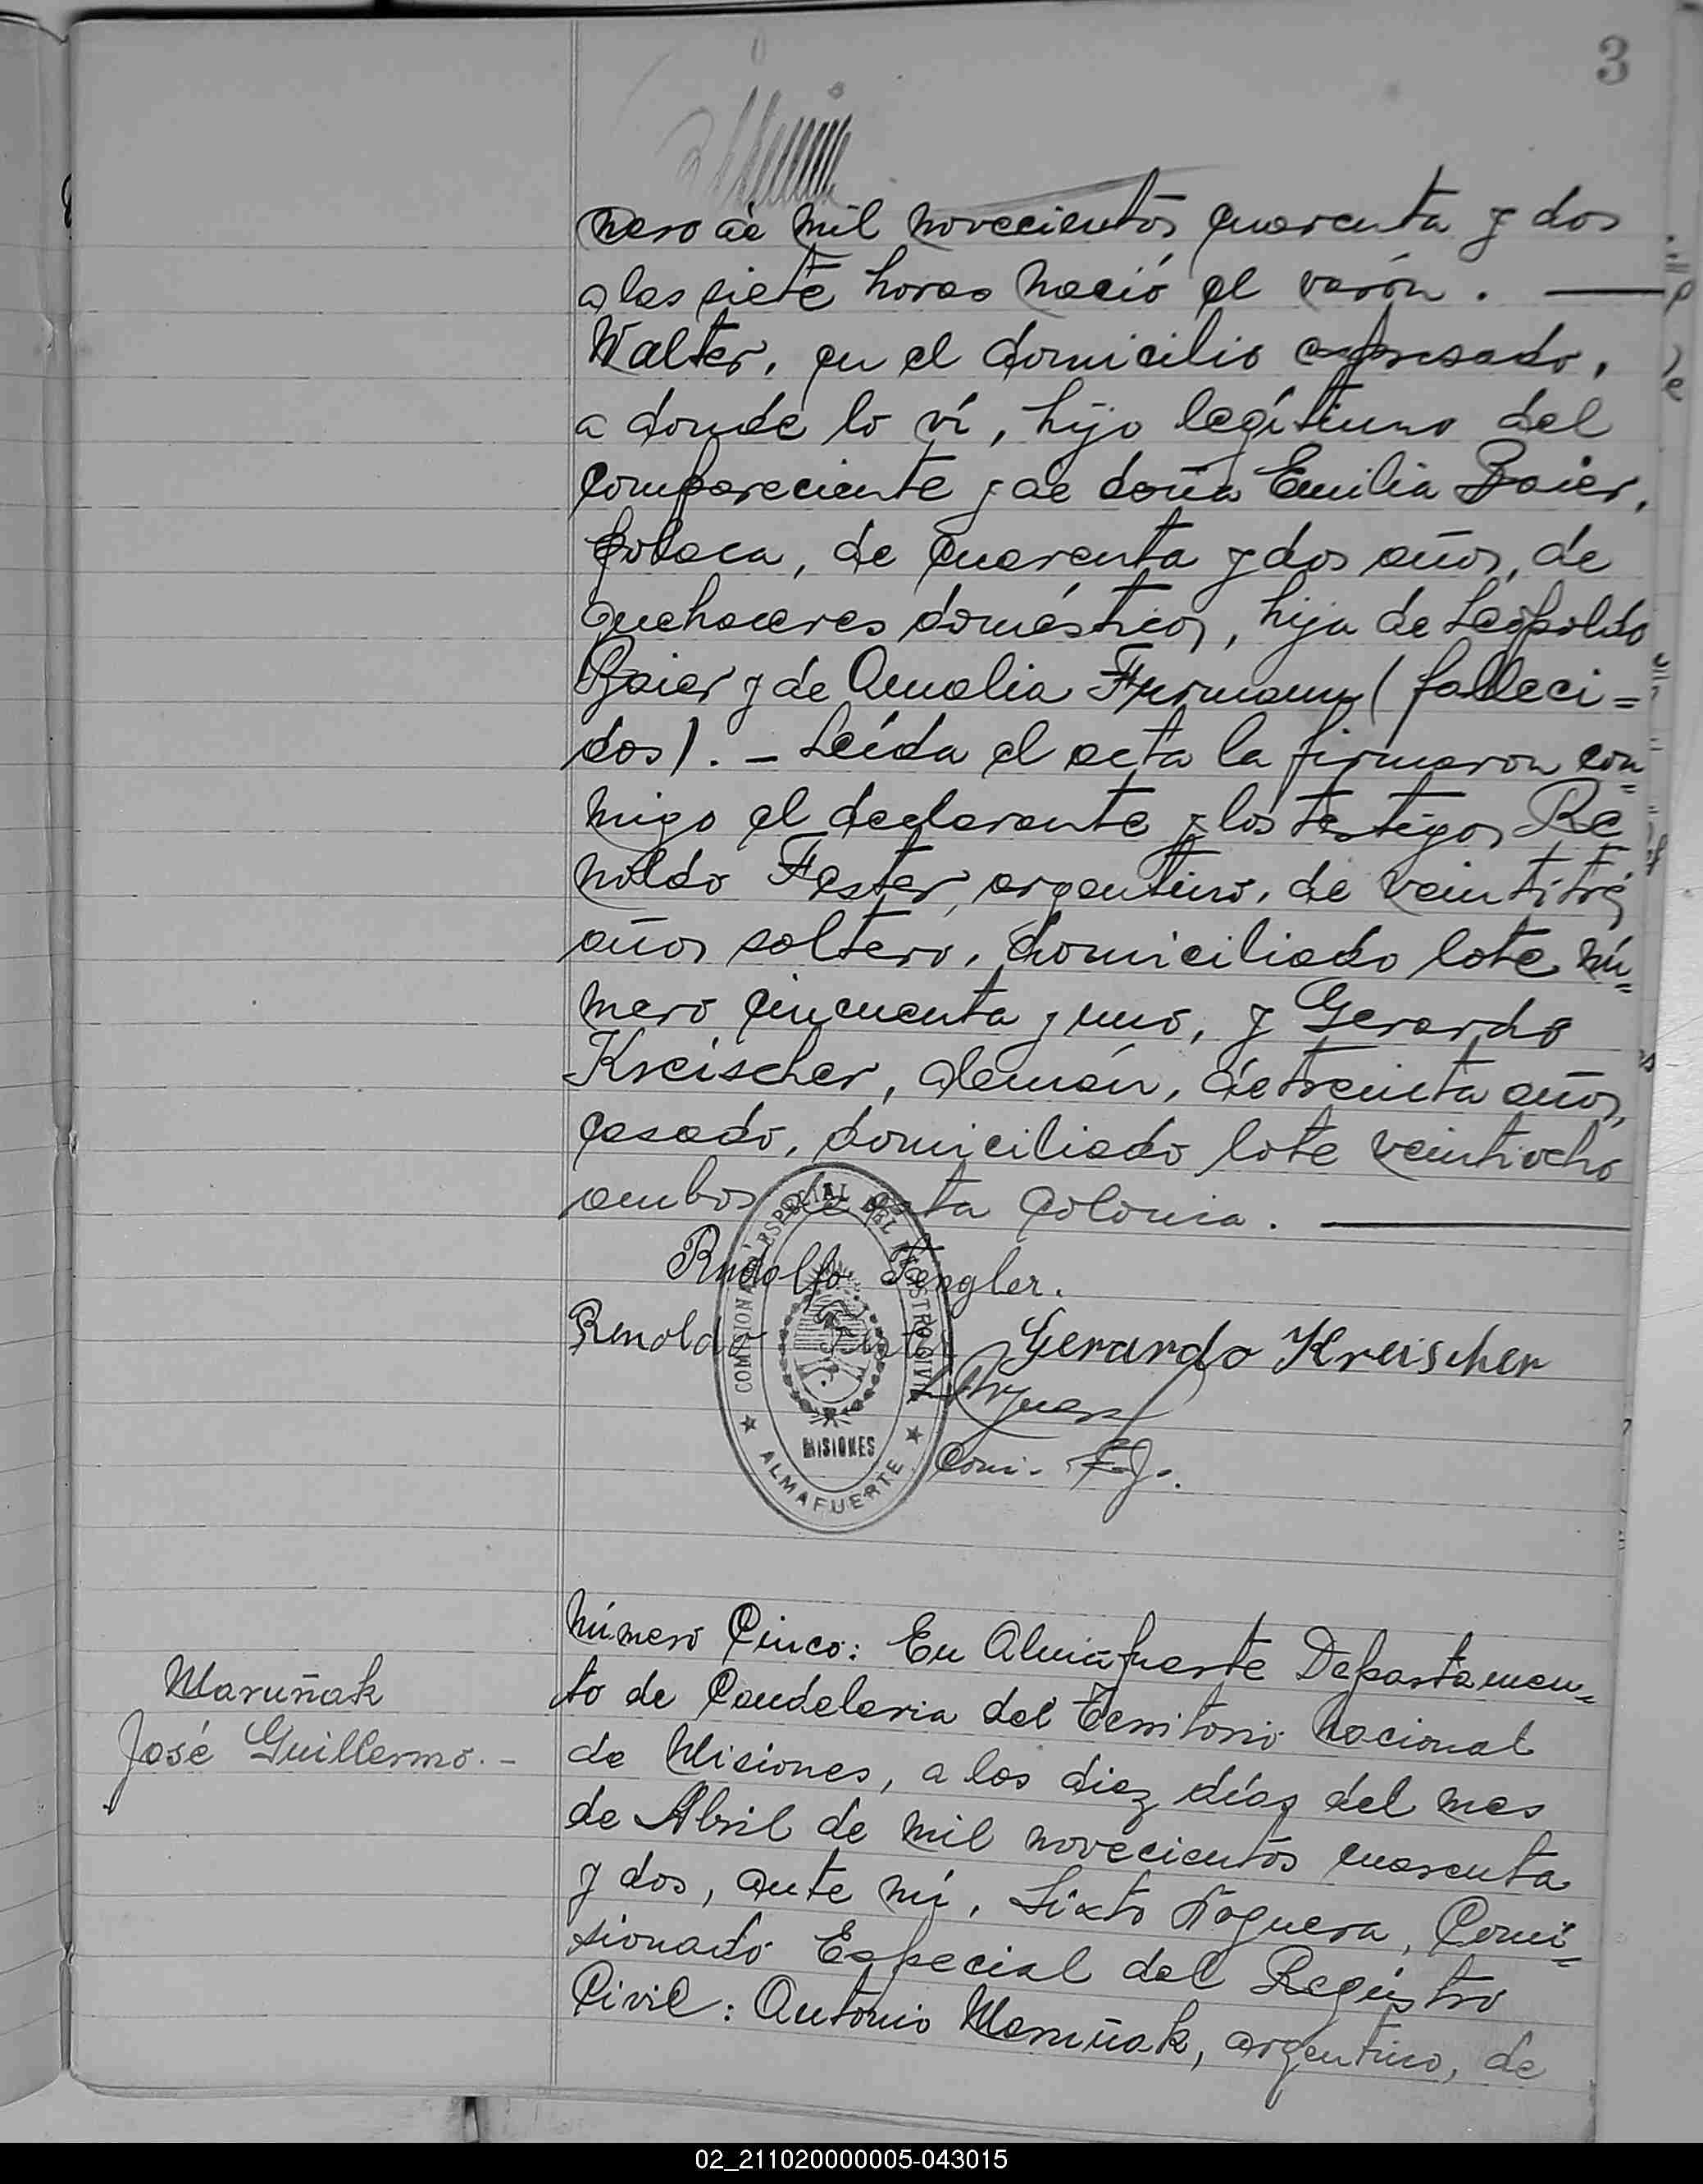 3
nero de mil novecientos cuarenta y dos
a las siete horas nació el varón. —
Walter, en el domicilio expresado,
a donde lo ví, hijo legítimo del
compareciente y de doña Emilia Baier,
polaca, de cuarenta y dos años, de
quehaceres domésticos, hija de Leopoldo
Baier y de Amalia Furmann (falleci=
dos). - Leída el acta la firmaron con=
migo el declarante y los testigos Re
noldo Fester, argentino, de veintitrés
años soltero, domiciliado lote nú=
mero cincuenta y uno, y Gerardo
Kreischer, alemán, de treinta años,
casado, domiciliado lote veintiocho
ambos de esta Colonia. —
Rudolfo Fengler.
Renoldo Gerardo Kreischer
Com.
COMISIONADO ESPECIAL DEL REGISTRO CIVIL
MISIONES
ALMAFUERTE
Maruñak
José Guillermo. -
Número Cinco: En Almafuerte Departamen=
to de Candelaria del Territorio Nacional
de Misiones, a los diez días del mes
de Abril de mil novecientos cuarenta
y dos, ante mí, Sixto Noguera, Comi=
sionado Especial del Registro
Civil: Antonio Maruñak, argentino, de
02_211020000005-043015